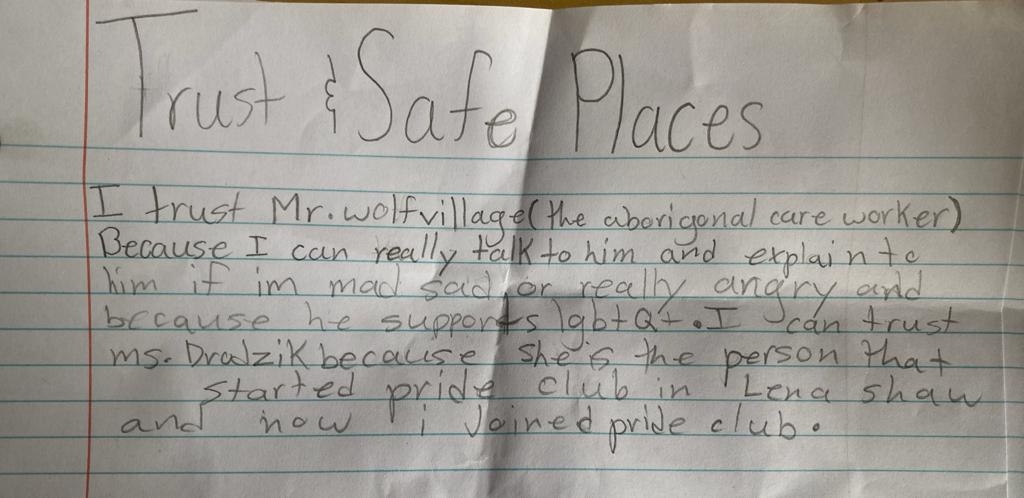 Trust & Safe Places
I trust Mr. wolfvillage (the aborigonal care worker)
Because I can really talk to him and explain to
him if im mad sad or really angry and
because he supports lgbtQ+. I can trust
ms. Dralzik because she's the person that
started pride club in Lena shaw
and now i Joined pride club.